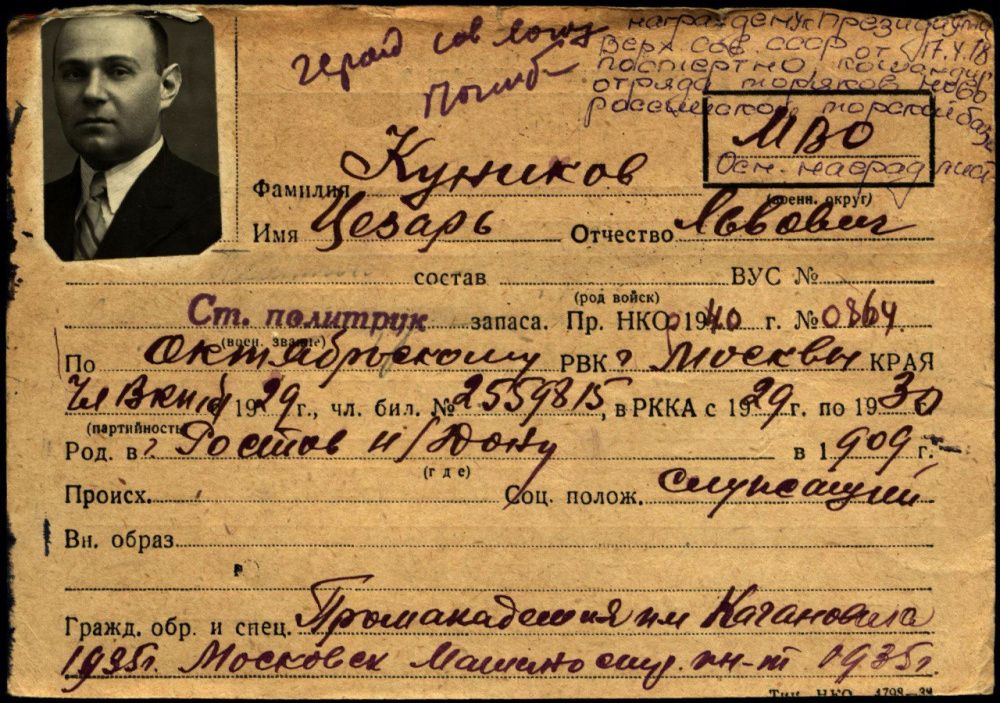 Герой Сов Союз
Погиб
награ. Указ. Президиума
Верх. Сов. СССР от 17.4.
посмертно, командир
отряда моряков Ново
российской морской базы
МВО
Осн. наград лист
(военн. округ)
Фамилия Куников
Имя Цезарь Отчество Львович
состав ВУС №
(род войск)
Ст. политрук запаса. Пр. НКО 1940 г. № 0864
(воен. звание)
По Октябрьскому РВК г Москвы КРАЯ
Чл ВКП(б) 1929 г., чл. бил. № 2559815, в РККА с 1929 г. по 1930
(партийность)
Род. в г Ростов н/Дону в 1909 г.
(где)
Происх. Соц. полож. служащий
Вн. образ.
Гражд. обр. и спец. Промакадемия им Кагановича
1935г. Московск Машиностр. ин-т 1935г.
Тип. НКО 4798—39